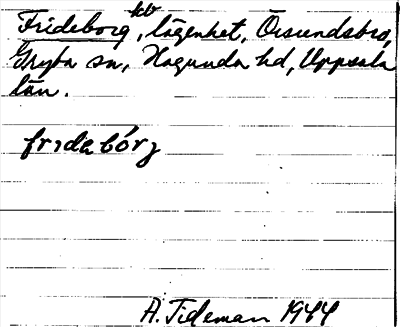 kv
Frideborg, lägenhet, Örsundsbro,
Gryta sn, Hagunda hd, Uppsala
län.
fridabórj
A. Tideman 1944